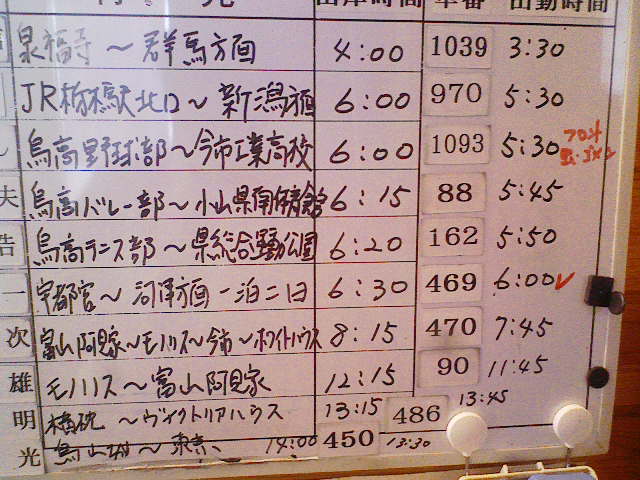 行先 出庫時間 車番 出勤時間
泉福寺～群馬方面 4:00 1039 3:30
JR栃木駅北口～新潟方面 6:00 970 5:30
烏高野球部～今市工業高校 6:00 1093 5:30 フロント
夫 烏高バレー部～小山県南体育館 6:15 88 5:45
告 烏高テニス部～県総合運動公園 6:20 162 5:50
一 宇都宮～河津方面一泊二日 6:30 469 6:00
次 富山阿見家～モノリス～今市～ホワイトハウス 8:15 470 7:45
雄 モノリス～富山阿見家 12:15 90 11:45
明 ～ヴィクトリアハウス 13:15 486 13:45
光 烏山城～東京 14:00 450 13:30